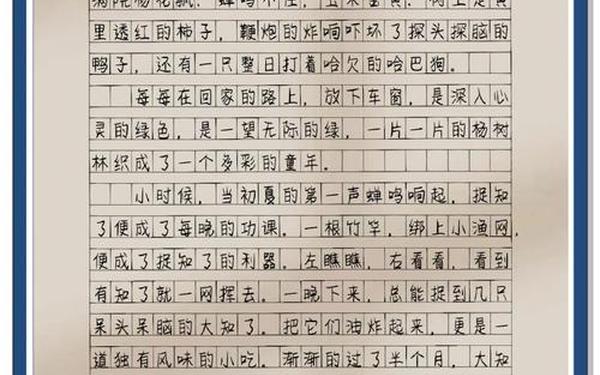 满院杨花飘，蝉鸣不住，玉米金黄，树上是黄
里透红的柿子，鞭炮的炸响吓坏了探头探脑的
鸭子，还有一只整日打着哈欠的哈巴狗。
每每在回家的路上，放下车窗，是深入心
灵的绿色，是一望无际的绿，一片一片的杨树
林织成了一个多彩的童年。
小时候，当初夏的第一声蝉鸣响起，捉知
了便成了每晚的功课。一根竹竿，绑上小渔网，
便成了捉知了的利器。左瞧瞧，右看看，看到
有知了就一网挥去。一晚下来，总能捉到几只
呆头呆脑的大知了。把它们油炸起来，更是一
道独有风味的小吃。渐渐的过了半个月，大知